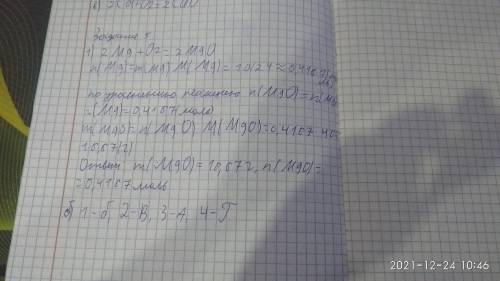 в) 2Ca+O2=2CaO
Задание 5
1) 2Mg+O2=2MgO
n(Mg)=m(Mg)/M(Mg)=10/24≈0,4167
по уравнению реакции n(MgO)=n(Mg)
n(Mg)=0,4167 моль
m(MgO)=n(MgO) M(MgO)=0,4167 40=
16,67(г)
Ответ m(MgO)=16,67 г, n(MgO)=
=0,4167 моль
б) 1-б, 2-В, 3-А, 4-Г
2021-12-24 10:46